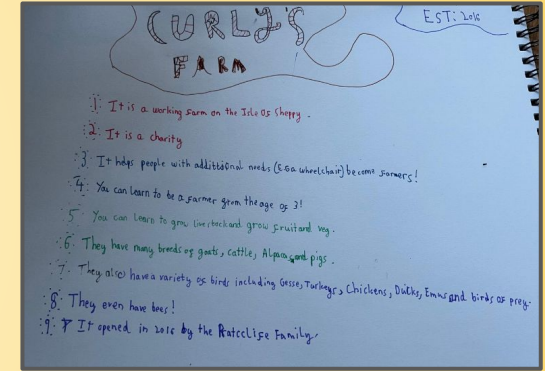 CURLY'S
FARM
EST: 2016
1: It is a working farm on the Isle Of Sheppy.
2: It is a charity
3: It helps people with additional needs (E.G a wheelchair) become farmers!
4: You can learn to be a farmer from the age of 3!
5: You can learn to grow livestock and grow fruit and veg.
6: They have many breeds of goats, cattle, Alpacas and pigs.
7. They also have a variety of birds including Geese, Turkeys, Chickens, Ducks, Emus and birds of prey.
8: They even have bees!
9: It opened in 2016 by the Ratcclife Family.